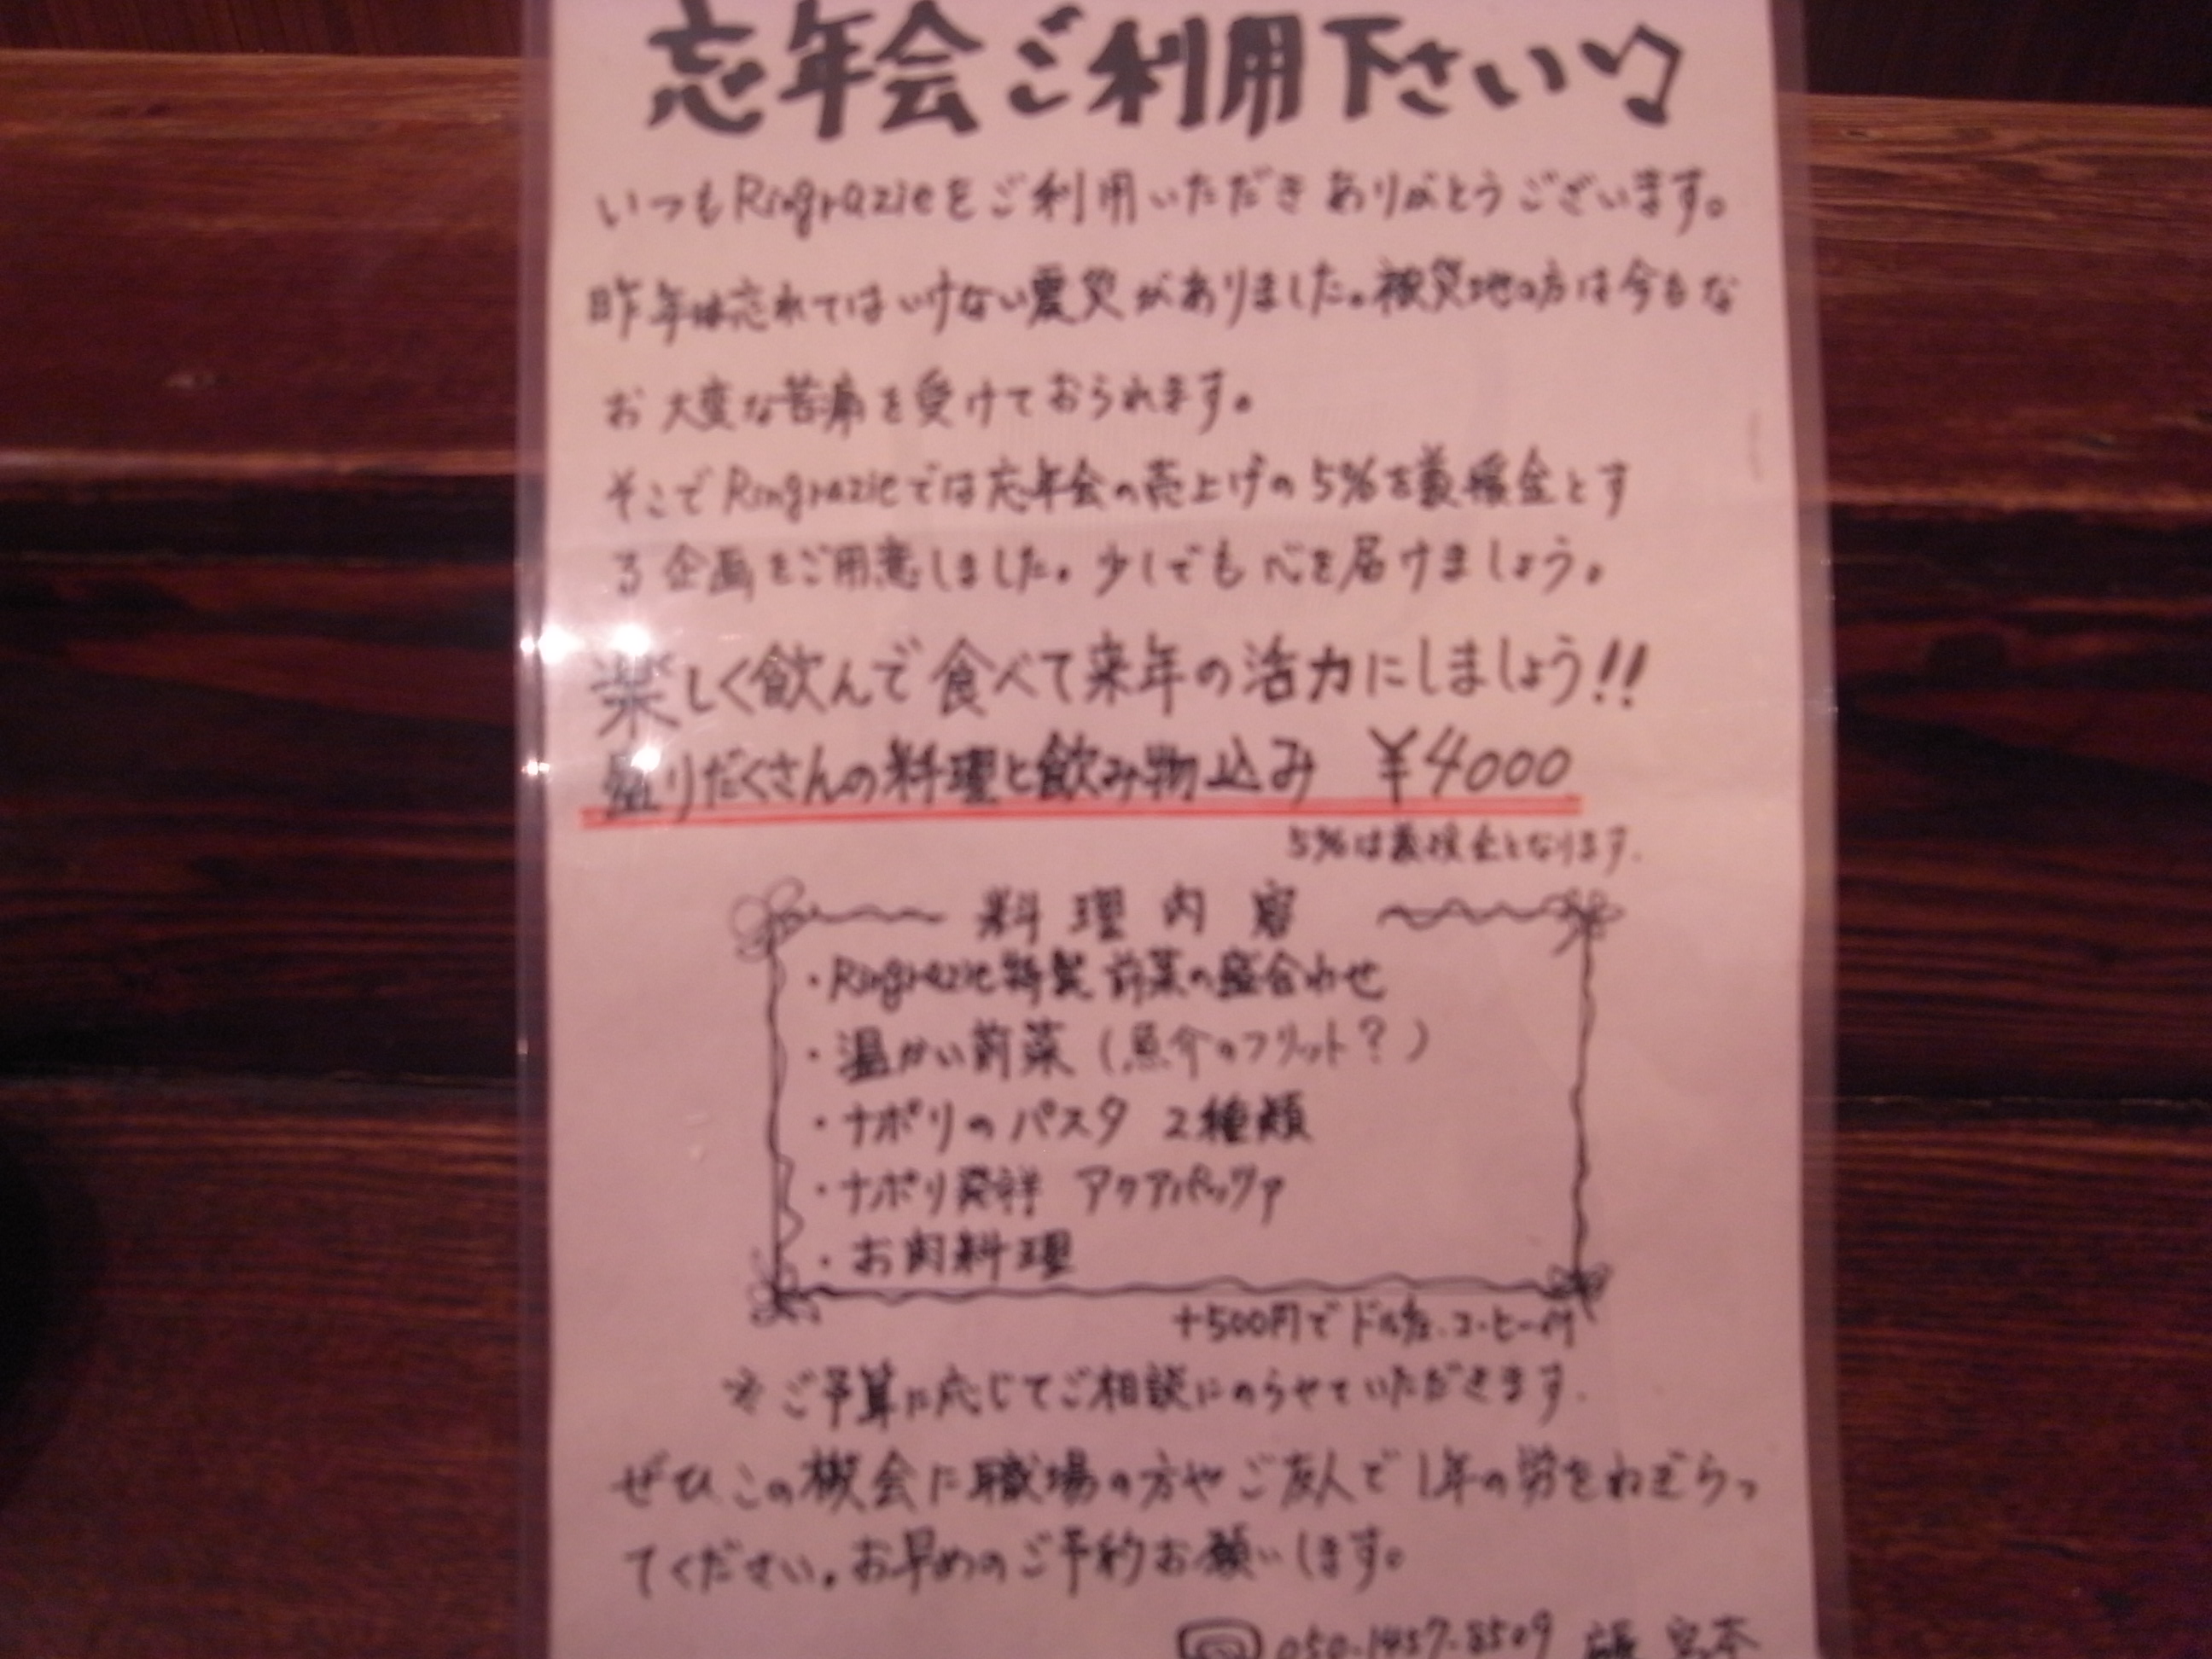 忘年会ご利用下さい♪
いつもRingrazieをご利用いただきありがとうございます。
昨年は忘れてはいけない震災がありました。被災地の方は今もな
お大変な苦痛を受けておられます。
そこでRingrazieでは忘年会の売上げの5%を義援金とす
る企画をご用意しました。少しでも心を届けましょう。
楽しく飲んで食べて来年の活力にしましょう!!
盛りだくさんの料理と飲み物込み ¥4000
5%は義援金となります.
料理内容
・Ringrazie特製 前菜の盛合わせ
・温かい前菜(魚介のフリット?)
・ナポリのパスタ 2種類
・ナポリ発祥 アクアパッツァ
・お肉料理
+500円でドルチェ.コーヒー付
※ご予算に応じてご相談にのらせていただきます.
ぜひこの機会に職場の方やご友人で1年の労をねぎらっ
てください。お早めのご予約お願いします。
050-1457-8509